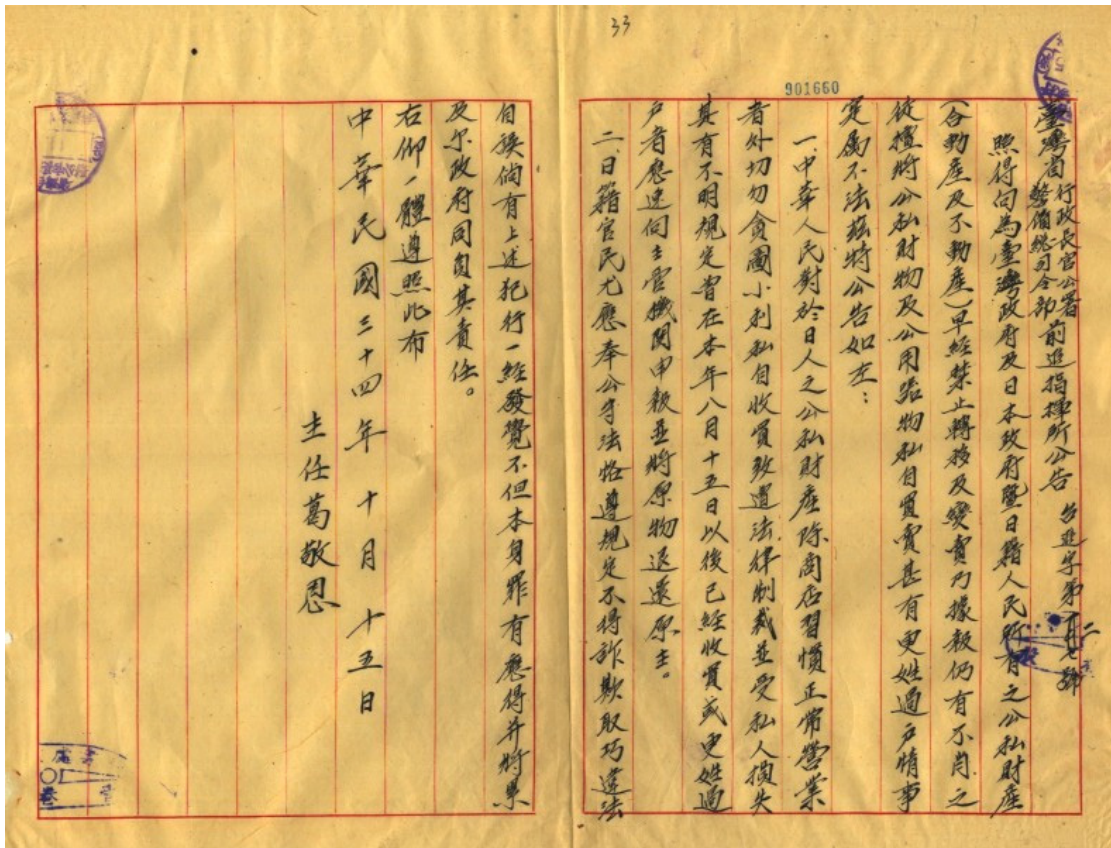 33
901660
臺灣省行政長官公署警備總司令部前進指揮所公告 台進字第 號
照得向為臺灣政府及日本政府暨日籍人民所有之公私財產
(合動產及不動產)早經禁止轉移及變賣乃據報仍有不肖之
徒擅將公私財物及公用器物私自買賣甚有更姓過戶情事
定屬不法茲特公告如左：
一、中華人民對於日人之公私財產除商店習慣正常營業
者外切勿貪圖小利私自收買致遭法律制裁並受私人損失
其有不明規定曾在本年八月十五日以後已經收買或更姓過
戶者應速向主管機關申報並將原物退還原主。
二、日籍官民尤應奉公守法恪遵規定不得詐欺取巧違法
自誤倘有上述犯行一經發覺不但本身罪有應得并將累
及尔政府同負其責任。
右仰一體遵照此布
中華民國三十四年十月十五日
主任葛敬恩